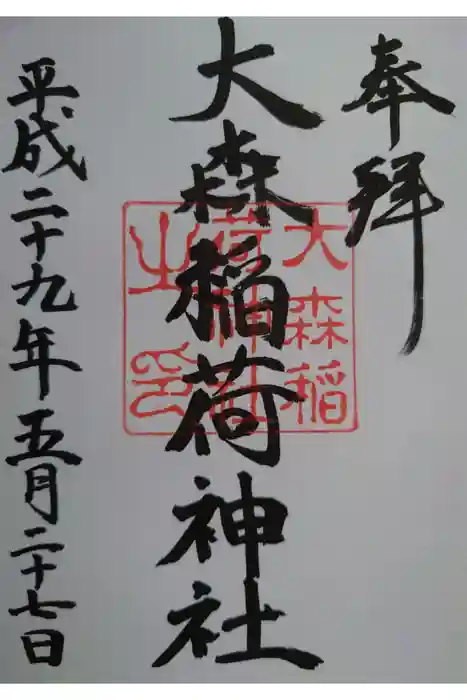 奉拝
大森稲荷神社
大森稲
荷神社
之印
平成二十九年五月二十七日